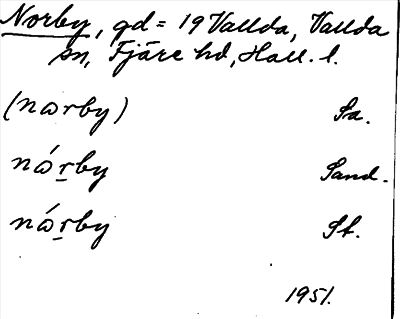 Norby, gd = 19 Vallda, Vallda
sn, Fjäre hd, Hall. l.
(nɷrby) Sa.
nɷ́r̲by Sand.
nɷ́r̲by St.
1951.